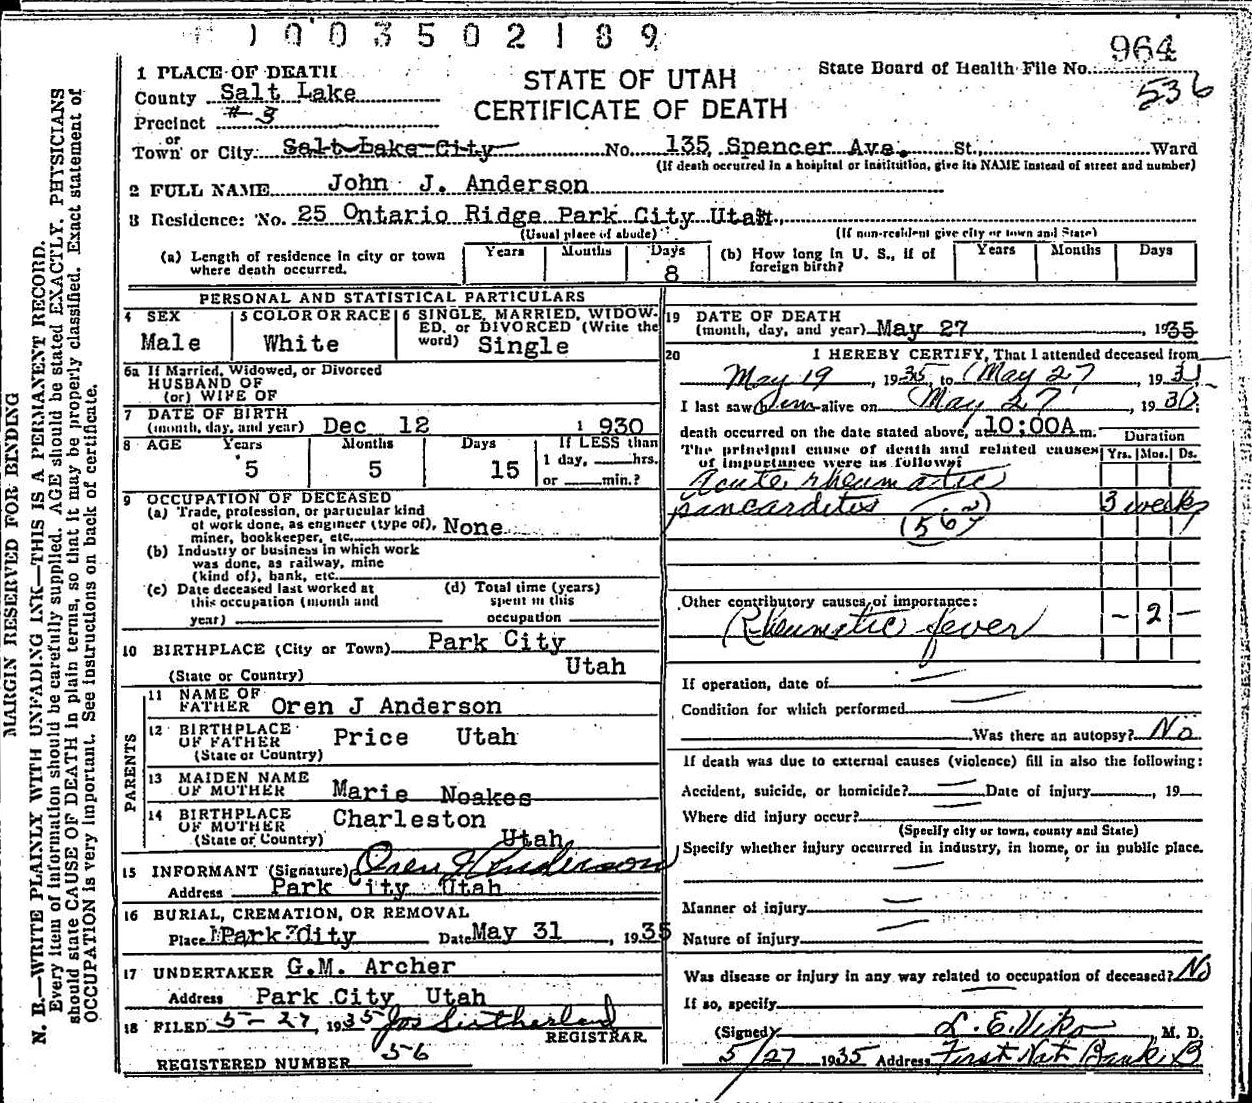 1003502189
964
536
STATE OF UTAH
CERTIFICATE OF DEATH
State Board of Health File No.
1 PLACE OF DEATH
County Salt Lake
Precinct #3
or
Town or City Salt Lake City No. 135 Spencer Ave. St. Ward
(If death occurred in a hospital or institution, give its NAME instead of street and number)
2 FULL NAME John J. Anderson
3 Residence: No. 25 Ontario Ridge Park City Utah.
(Usual place of abode) (If non-resident give city or town and State)
(a) Length of residence in city or town where death occurred. Years Months Days 8
(b) How long in U. S., if of foreign birth? Years Months Days
PERSONAL AND STATISTICAL PARTICULARS
4 SEX Male
5 COLOR OR RACE White
6 SINGLE, MARRIED, WIDOWED, or DIVORCED (Write the word) Single
6a If Married, Widowed, or Divorced
HUSBAND OF
(or) WIFE OF
7 DATE OF BIRTH
(month, day, and year) Dec 12 1930
8 AGE Years Months Days If LESS than
5 5 15 1 day, hrs.
or min.?
9 OCCUPATION OF DECEASED
(a) Trade, profession, or particular kind
of work done, as engineer (type of), None
miner, bookkeeper, etc.
(b) Industry or business in which work
was done, as railway, mine
(kind of), bank, etc.
(c) Date deceased last worked at
this occupation (month and
year)
(d) Total time (years)
spent in this
occupation
10 BIRTHPLACE (City or Town) Park City
(State or Country) Utah
PARENTS
11 NAME OF
FATHER Oren J Anderson
12 BIRTHPLACE
OF FATHER Price Utah
(State or Country)
13 MAIDEN NAME
OF MOTHER Marie Noakes
14 BIRTHPLACE
OF MOTHER Charleston
(State or Country) Utah
15 INFORMANT (Signature) Oren J Anderson
Address Park City Utah
16 BURIAL, CREMATION, OR REMOVAL
Place Park City Date May 31, 1935
17 UNDERTAKER G.M. Archer
Address Park City Utah
18 FILED 5-27, 1935 Jos Sutherland
REGISTRAR
REGISTERED NUMBER 56
19 DATE OF DEATH
(month, day, and year) May 27, 1935
20 I HEREBY CERTIFY, That I attended deceased from
May 19, 1935, to May 27, 193
I last saw him alive on May 27, 193
death occurred on the date stated above, at 10:00A m.
The principal cause of death and related causes
of importance were as follows:
Duration
Yrs. Mos. Ds.
Acute rheumatic
pancarditis (56) 3 weeks
Other contributory causes of importance:
Rheumatic fever - 2 -
If operation, date of
Condition for which performed
Was there an autopsy? No
If death was due to external causes (violence) fill in also the following:
Accident, suicide, or homicide? Date of injury , 19
Where did injury occur?
(Specify city or town, county and State)
Specify whether injury occurred in industry, in home, or in public place.
Manner of injury
Nature of injury
Was disease or injury in any way related to occupation of deceased? No
If so, specify
(Signed) L. E. Viko M. D.
5/27 1935 Address First Nat Bank B
MARGIN RESERVED FOR BINDING
N. B.—WRITE PLAINLY WITH UNFADING INK—THIS IS A PERMANENT RECORD.
Every item of information should be carefully supplied. AGE should be stated EXACTLY. PHYSICIANS
should state CAUSE OF DEATH in plain terms, so that it may be properly classified. Exact statement of
OCCUPATION is very important. See instructions on back of certificate.